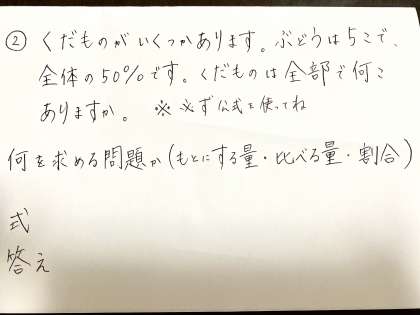 ② くだものがいくつかあります。ぶどうは5こで、
全体の50%です。くだものは全部で何こ
ありますか。 ※必ず公式を使ってね
何を求める問題か(もとにする量・比べる量・割合)
式
答え